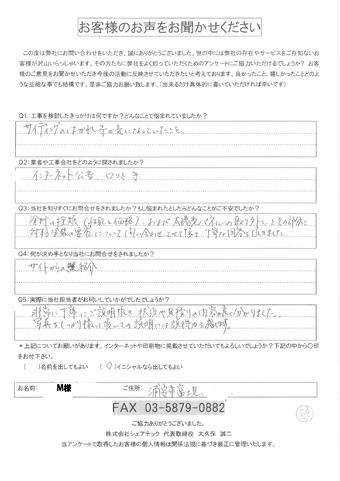 お客様のお声をお聞かせください
この度は弊社にお問い合わせをいただき、誠にありがとうございました。世の中には弊社の存在やサービスをご存知ないお
客様が沢山いらっしゃいます。その方たちに弊社をよく知っていただくためのアンケートにご協力いただけるでしょうか？ お客
様のご意見をお聞かせいただき今後の活動に反映させていただきたいと考えております。良かったこと、嬉しかったことどのよ
うな些細な事でも結構です。是非ご協力お願い致します。（出来るだけ具体的に書いていただければ幸いです）
Q1：工事を検討したきっかけは何ですか？どんなことで悩まれていましたか？
サイディングのはがれ等が気になっていたこと。
Q2：業者や工事会社をどのように探されましたか？
インターネット公告、口コミ等
Q3：当社を知りすぐにお問合せをされましたか？もし悩まれたとしたらどんなことがご不安でしたか？
塗料の種類（性能と価格）、および太陽光パネルの取り外しとその部分に
対する塗装の要否について問い合わせさせて頂き、丁寧な回答を頂きました。
Q4：何が決め手となり当社にお問合せをされましたか？
サイトからの紹介
Q5：実際に当社担当者がお伺いしていかがでしたでしょうか？
非常に丁寧にご説明頂き、状況や見積りの内容が良く分かりました。
写真をしっかり撮って頂いての説明には説得力を感じます。
＊上記についてお願いがあります。インターネットや印刷物に掲載させていただいてもよろしいでしょうか？下記の中から〇印
をお付下さい。
（　）名前を出してもよい　（〇）イニシャルなら出してもよい
お名前：　M様　ご住所：　浦安市富士見
FAX 03-5879-0882
ご協力ありがとうございました。
株式会社シェアテック 代表取締役 大久保 誠二
当アンケートで取得したお客様の個人情報は関係法規に基づき厳正に管理いたします。